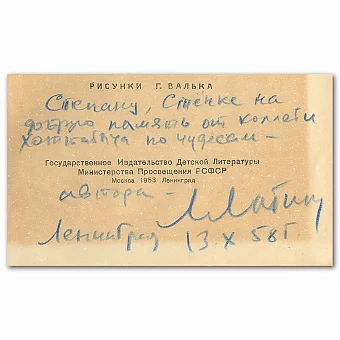 РИСУНКИ Г. ВАЛЬКА
Степану, Стёпке на
добрую память от коллеги
по чудесам —
Государственное Издательство Детской Литературы
Министерства Просвещения РСФСР
Москва 1953 Ленинград
автора —
Ленинград 13 X 58 г